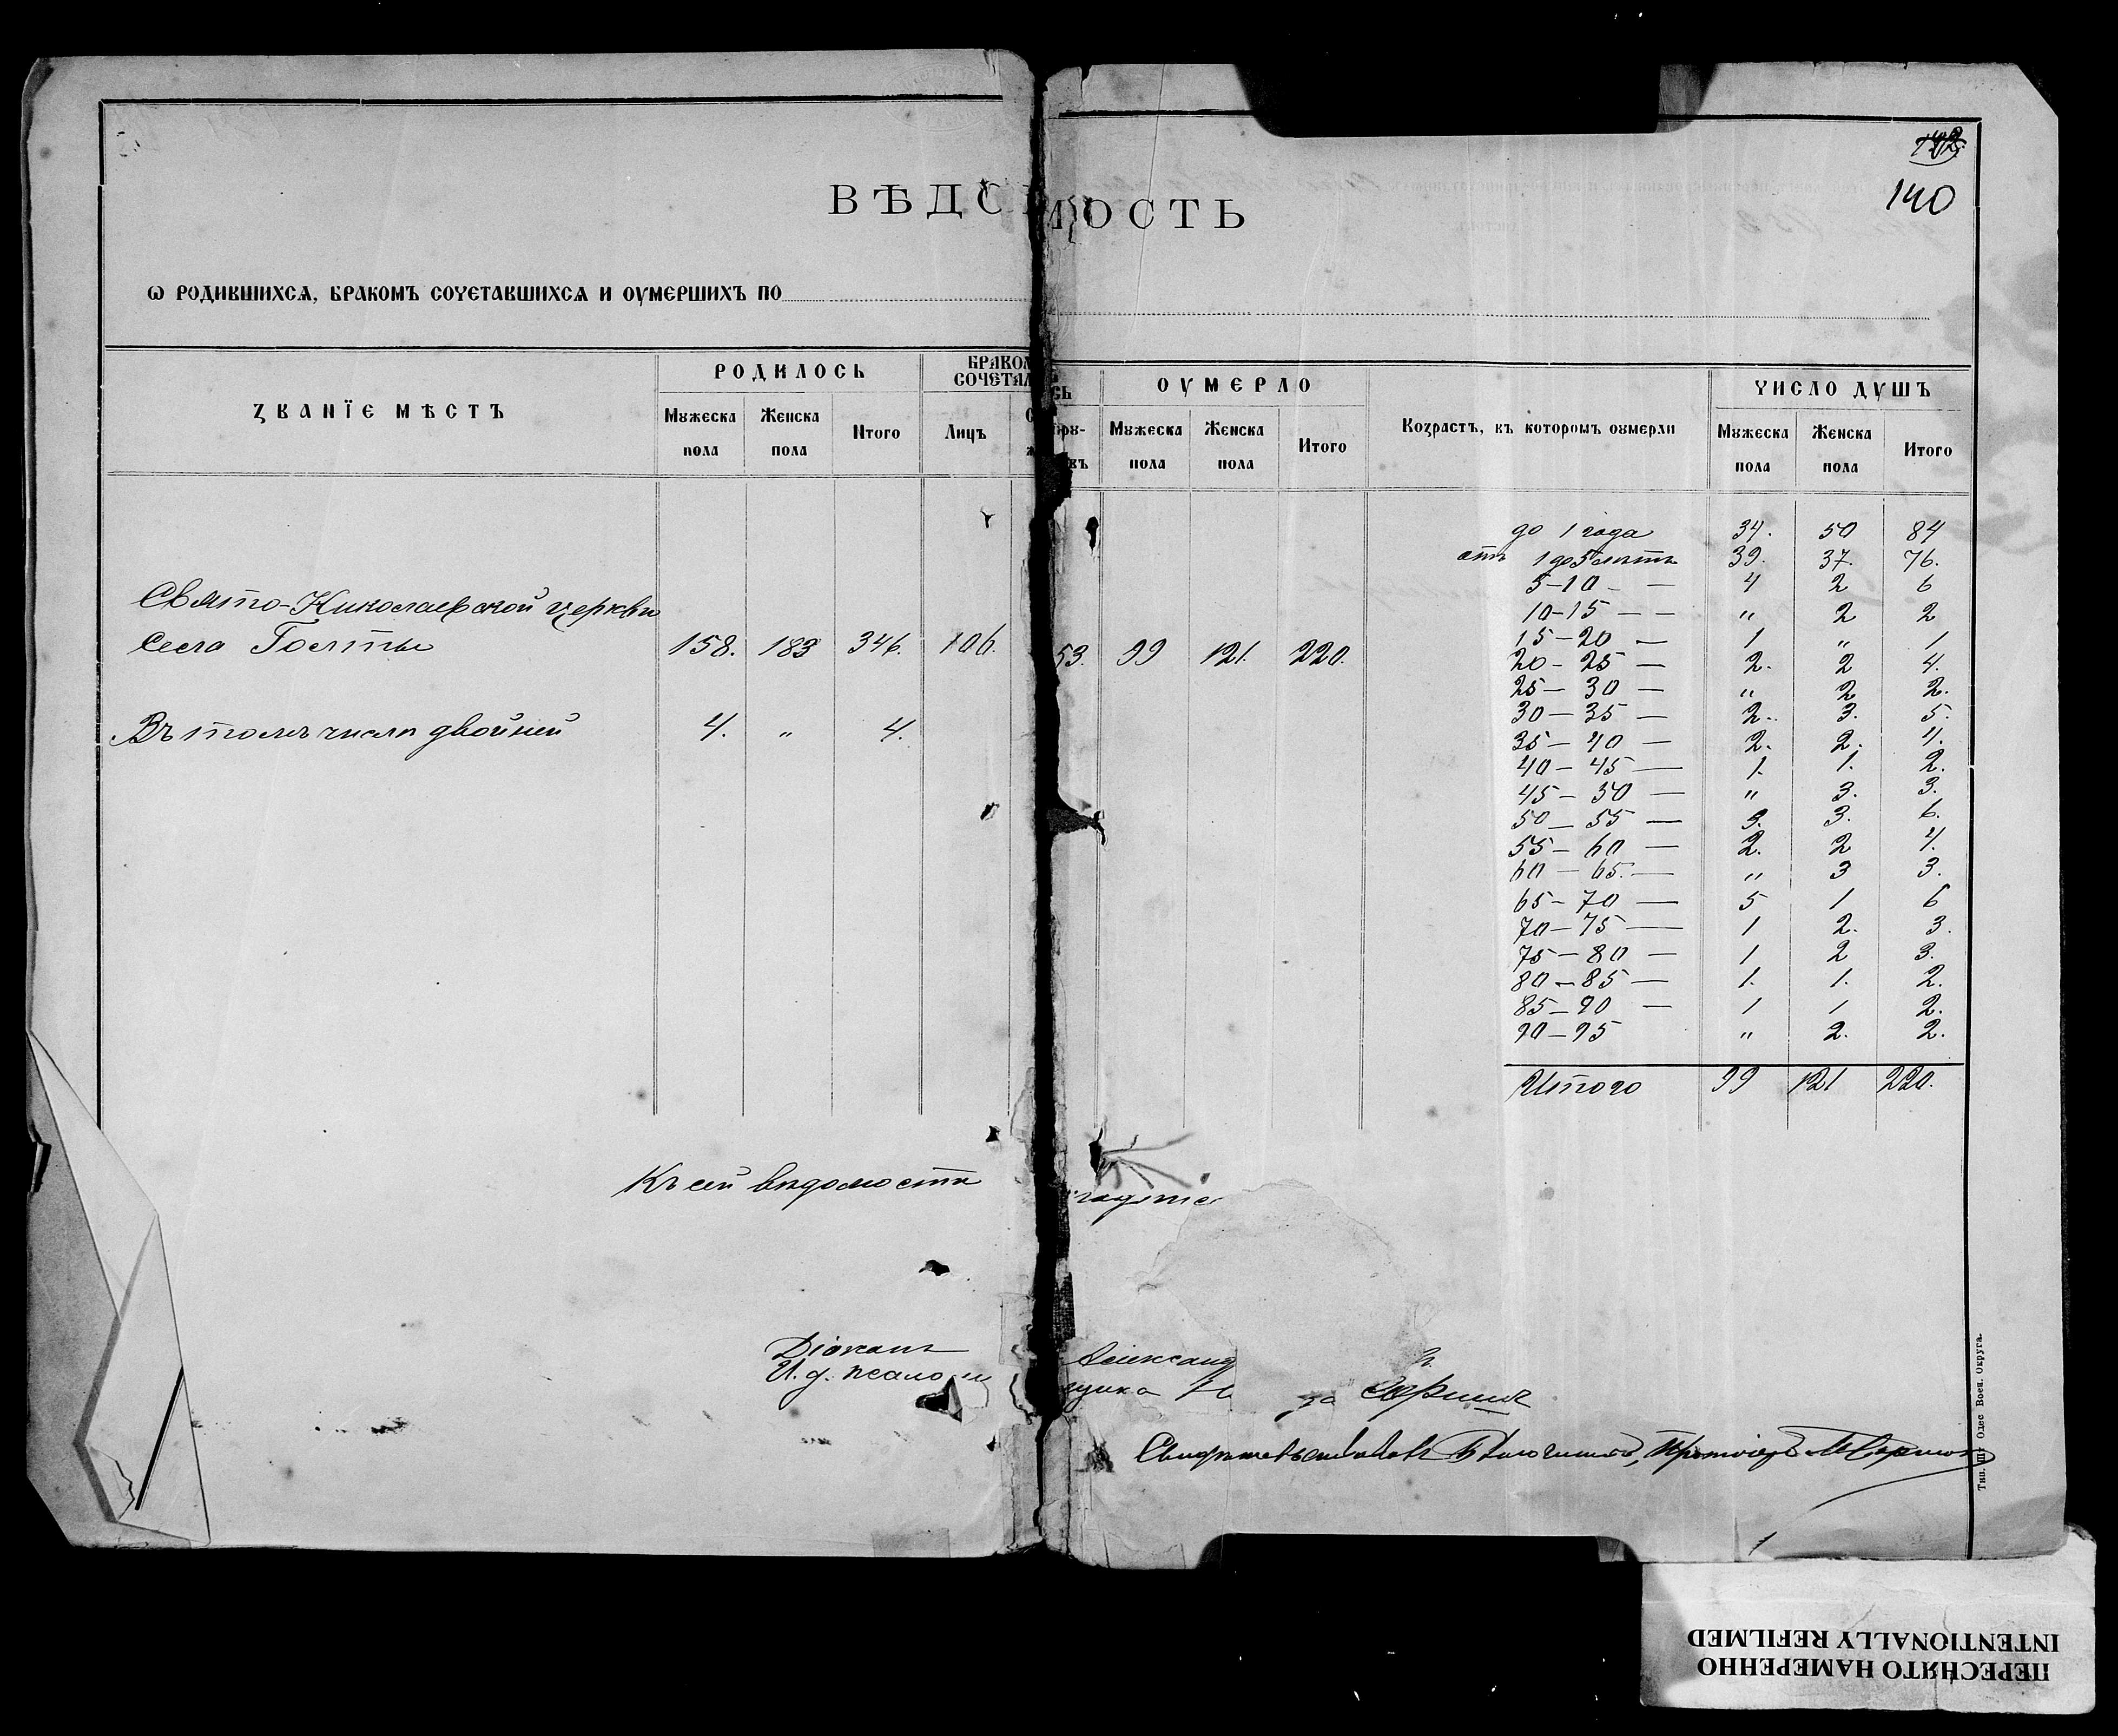 140
ВѢДОМОСТЬ
Ѡ РОДИВШИХСѦ, БРАКОМЪ СОЧЕТАВШИХСѦ И ОУМЕРШИХЪ ПО
ЗВАНЇЕ МѢСТЪ
РОДИЛОСЬ
БРАКОМЪ СОЧЕТАЛОСЬ
ОУМЕРЛО
Возрастъ, въ которомъ оумерли
ЧИСЛО ДУШЪ
Мꙋжеска пола Женска пола Итого Лицъ Мꙋжеска пола Женска пола Итого Мꙋжеска пола Женска пола Итого
до 1 года 34. 50 84
отъ 1 до 5 лѣтъ 39. 37. 76.
5-10 - — 4 2 6
Свято-Николаевской церкви
10-15 — — " 2 2
села Голты 158. 183 346. 106. 53. 99 121. 220.
15-20 — 1 " 1
20-25 — 2. 2 4.
25-30 — " 2 2.
30-35 — 2. 3. 5.
Въ томъ числѣ двойней 4. " 4.
35-40 — 2. 2. 4.
40-45 — 1. 1. 2.
45-50 — " 3. 3.
50-55 — 3. 3. 6.
55-60 — 2. 2 4.
60-65. — " 3 3.
65-70 — 5 1 6
70-75 — 1 2. 3.
75-80 — 1 2 3.
80-85 — 1. 1. 2.
85-90 — 1 1 2.
90-95 " 2. 2.
Итого 99 121 220.
Къ сей вѣдомости
Діаконъ Александ
И. д. псалом щика
Свидѣтельствовалъ Благочинный, Протоіерей
Тип. Шт. Одес. Воен. Округа.
ПЕРЕСНЯТО НАМЕРЕННО
INTENTIONALLY REFILMED